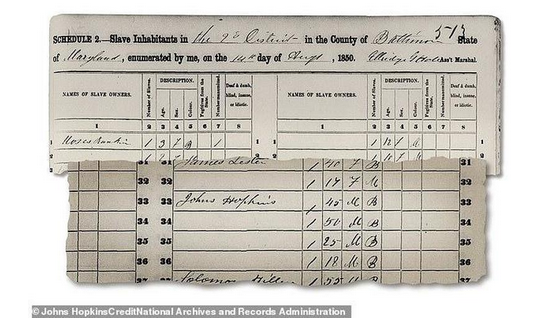 513
SCHEDULE 2.—Slave Inhabitants in the 2d District in the County of Baltimore State
of Maryland, enumerated by me, on the 14th day of Augt, 1850. Ass't Marshal.
NAMES OF SLAVE OWNERS. Number of Slaves. DESCRIPTION. Age. Sex. Colour. Fugitives from the State. Number manumitted. Deaf & dumb, blind, insane, or idiotic. NAMES OF SLAVE OWNERS. Number of Slaves. DESCRIPTION. Age. Sex. Colour. Fugitives from the State. Number manumitted. Deaf & dumb, blind, insane, or idiotic.
1 2 3 4 5 6 7 8 1 2 3 4 5 6 7 8
1 Moses 1 1 1
31 31 James Lester 1 40 F B 31
32 32 1 17 F M 32
33 33 Johns Hopkins 1 45 M B 33
34 34 1 50 M B 34
35 35 1 25 M B 35
36 36 1 18 M B 36
Solomon 1 55 M B 37
© Johns HopkinsCreditNational Archives and Records Administration